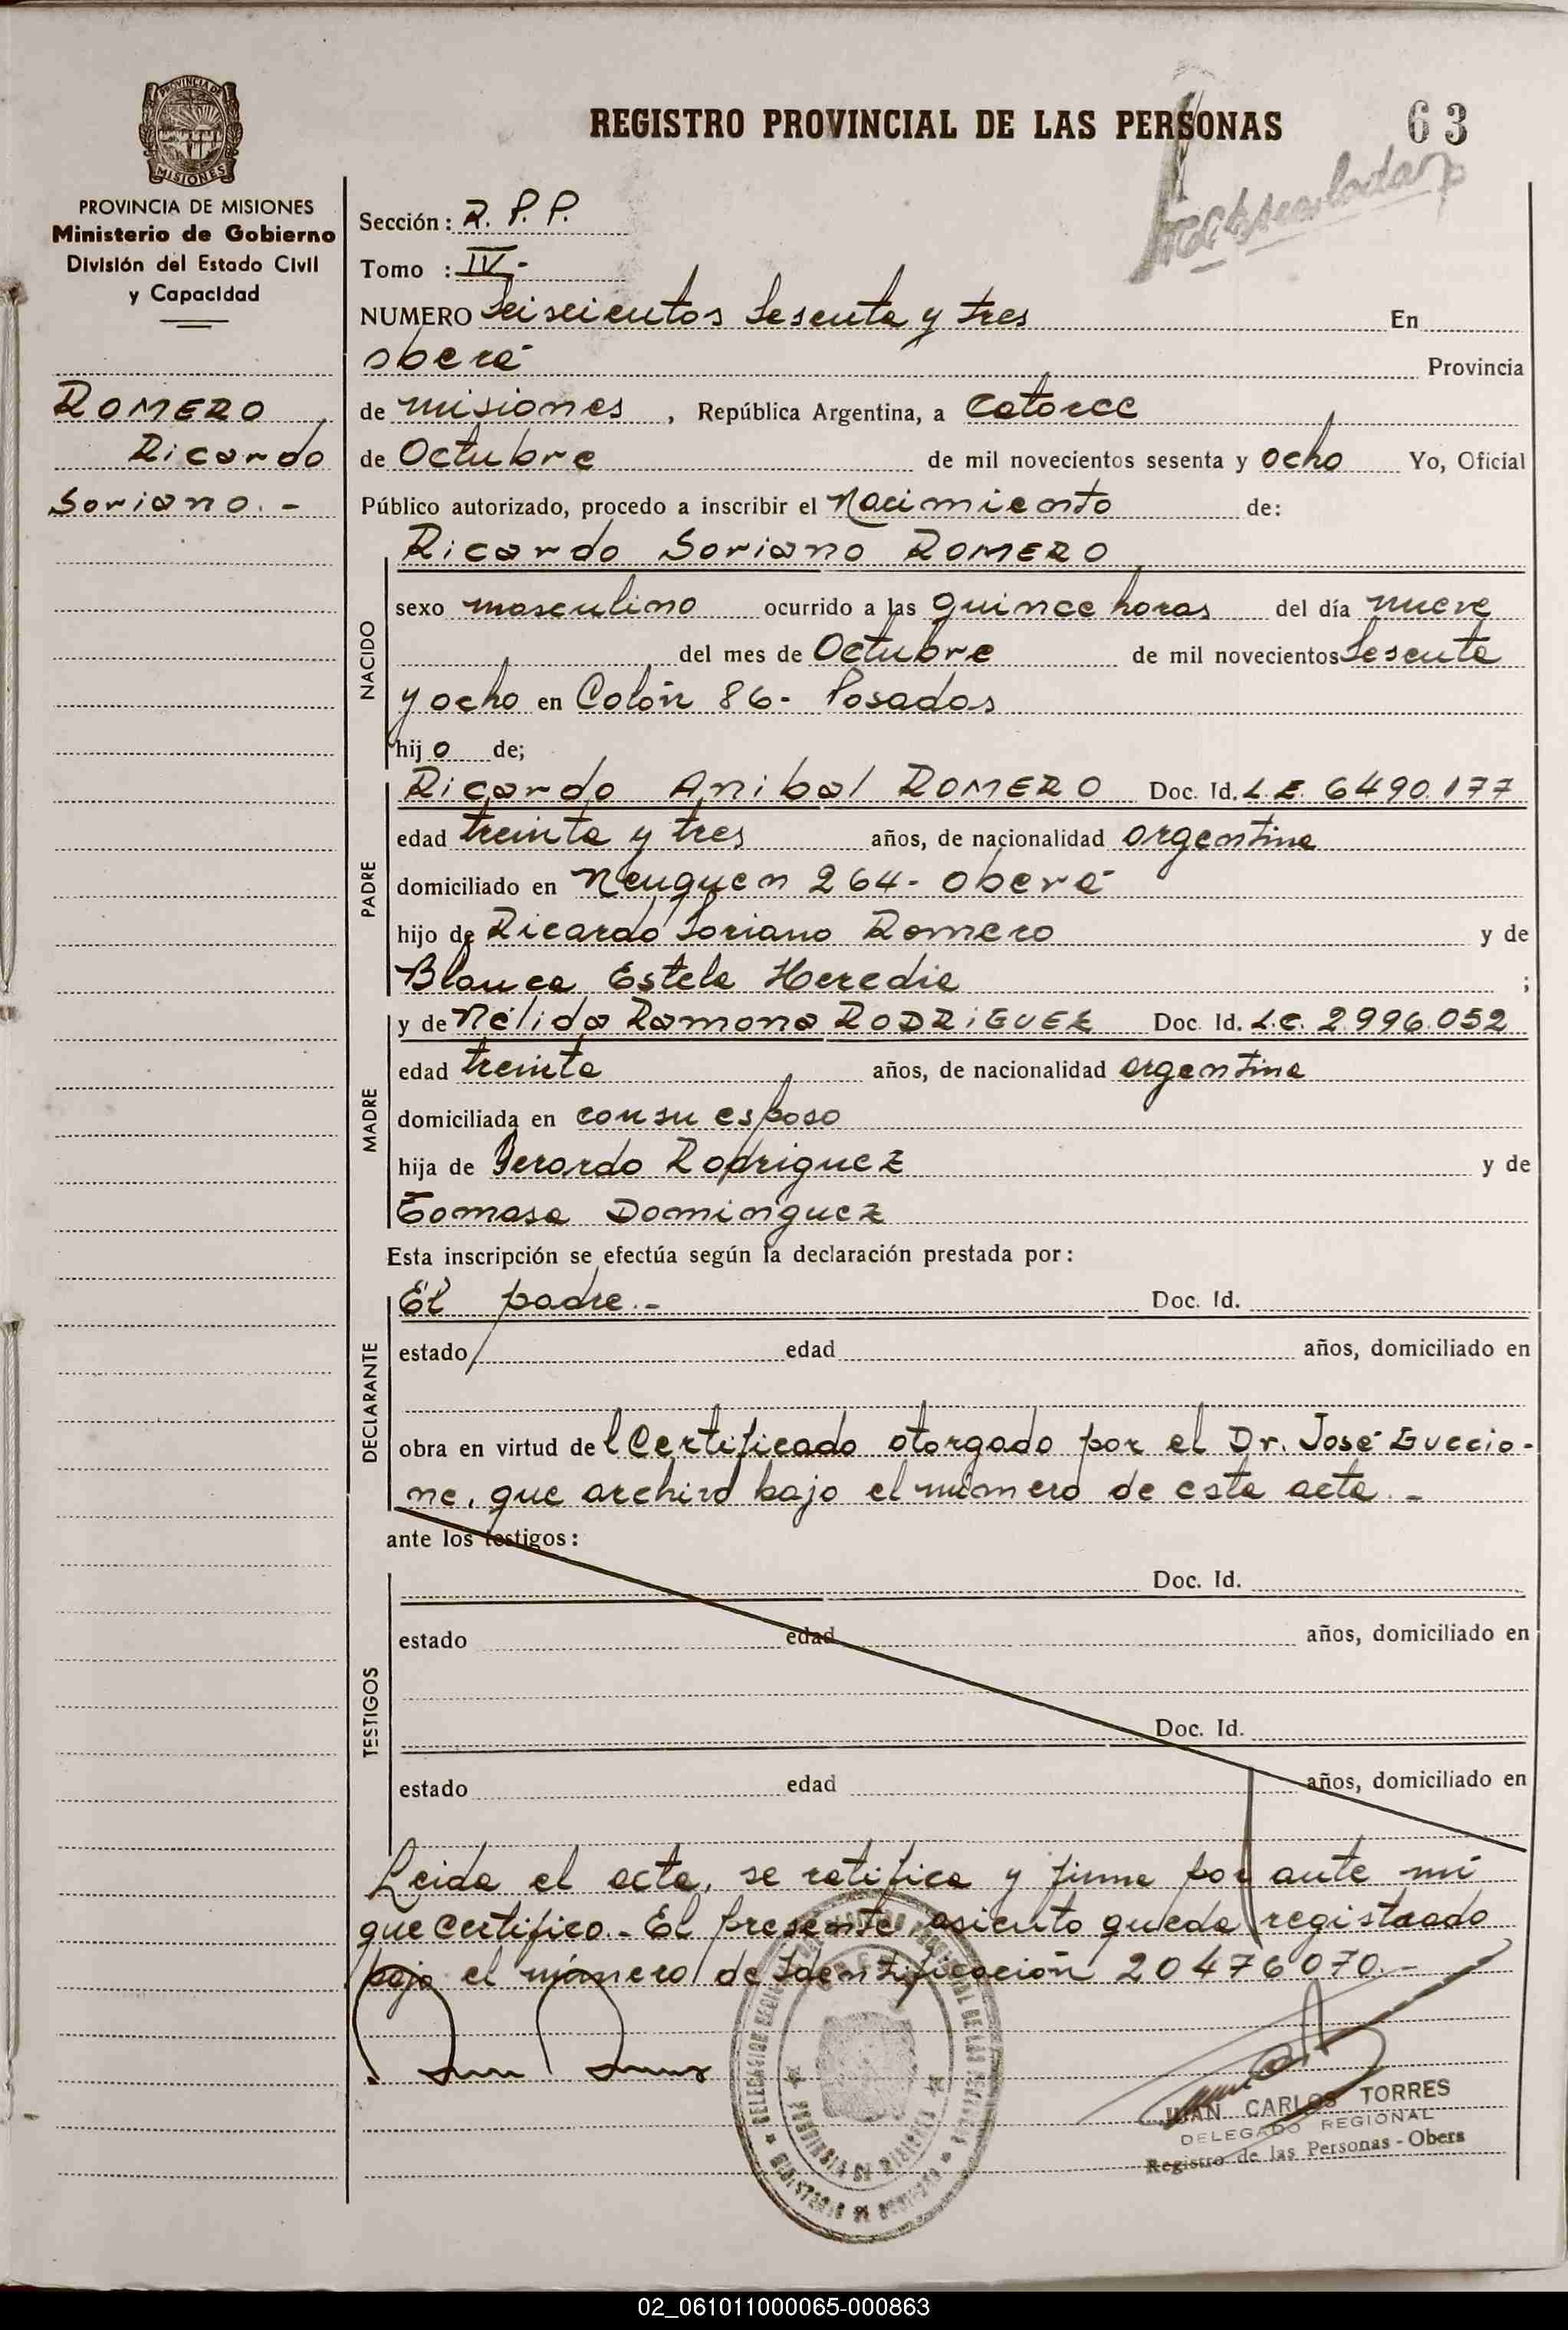 REGISTRO PROVINCIAL DE LAS PERSONAS 63
PROVINCIA DE
MISIONES
PROVINCIA DE MISIONES
Ministerio de Gobierno
División del Estado Civil
y Capacidad
ROMERO
Ricardo
Soriano.-
Sección: R. P. P.
Tomo : IV-
NUMERO Seiscientos Sesenta y tres En
oberá Provincia
de misiones, República Argentina, a catorce
de Octubre de mil novecientos sesenta y ocho Yo, Oficial
Público autorizado, procedo a inscribir el Nacimiento de:
Ricardo Soriano ROMERO
NACIDO
sexo masculino ocurrido a las quince horas del día nueve
del mes de Octubre de mil novecientos Sesenta
y ocho en Colón 86- Posadas
hijo de;
PADRE
Ricardo Anibal ROMERO Doc. Id. L.E. 6490.177
edad treinta y tres años, de nacionalidad argentina
domiciliado en Neuquen 264- oberá
hijo de Ricardo Soriano Romero y de
Blanca Estela Heredia ;
MADRE
y de Nélida Ramona RODRIGUEZ Doc. Id. L.C. 2.996.052
edad treinta años, de nacionalidad argentina
domiciliada en con su esposo
hija de Gerardo Rodriguez y de
Tomasa Dominguez
Esta inscripción se efectúa según la declaración prestada por:
DECLARANTE
El padre.- Doc. Id.
estado edad años, domiciliado en
obra en virtud del Certificado otorgado por el Dr. José Guccio-
ne, que archivo bajo el número de esta acta.-
ante los testigos:
TESTIGOS
Doc. Id.
estado edad años, domiciliado en
Doc. Id.
estado edad años, domiciliado en
Leida el acta, se ratifica y firma por ante mi
que certifico.- El presente asiento queda registrado
bajo el número de Identificación 20476070.-
PROVINCIA DE MISIONES
JUAN CARLOS TORRES
DELEGADO REGIONAL
Registro de las Personas - Obera
02_061011000065-000863